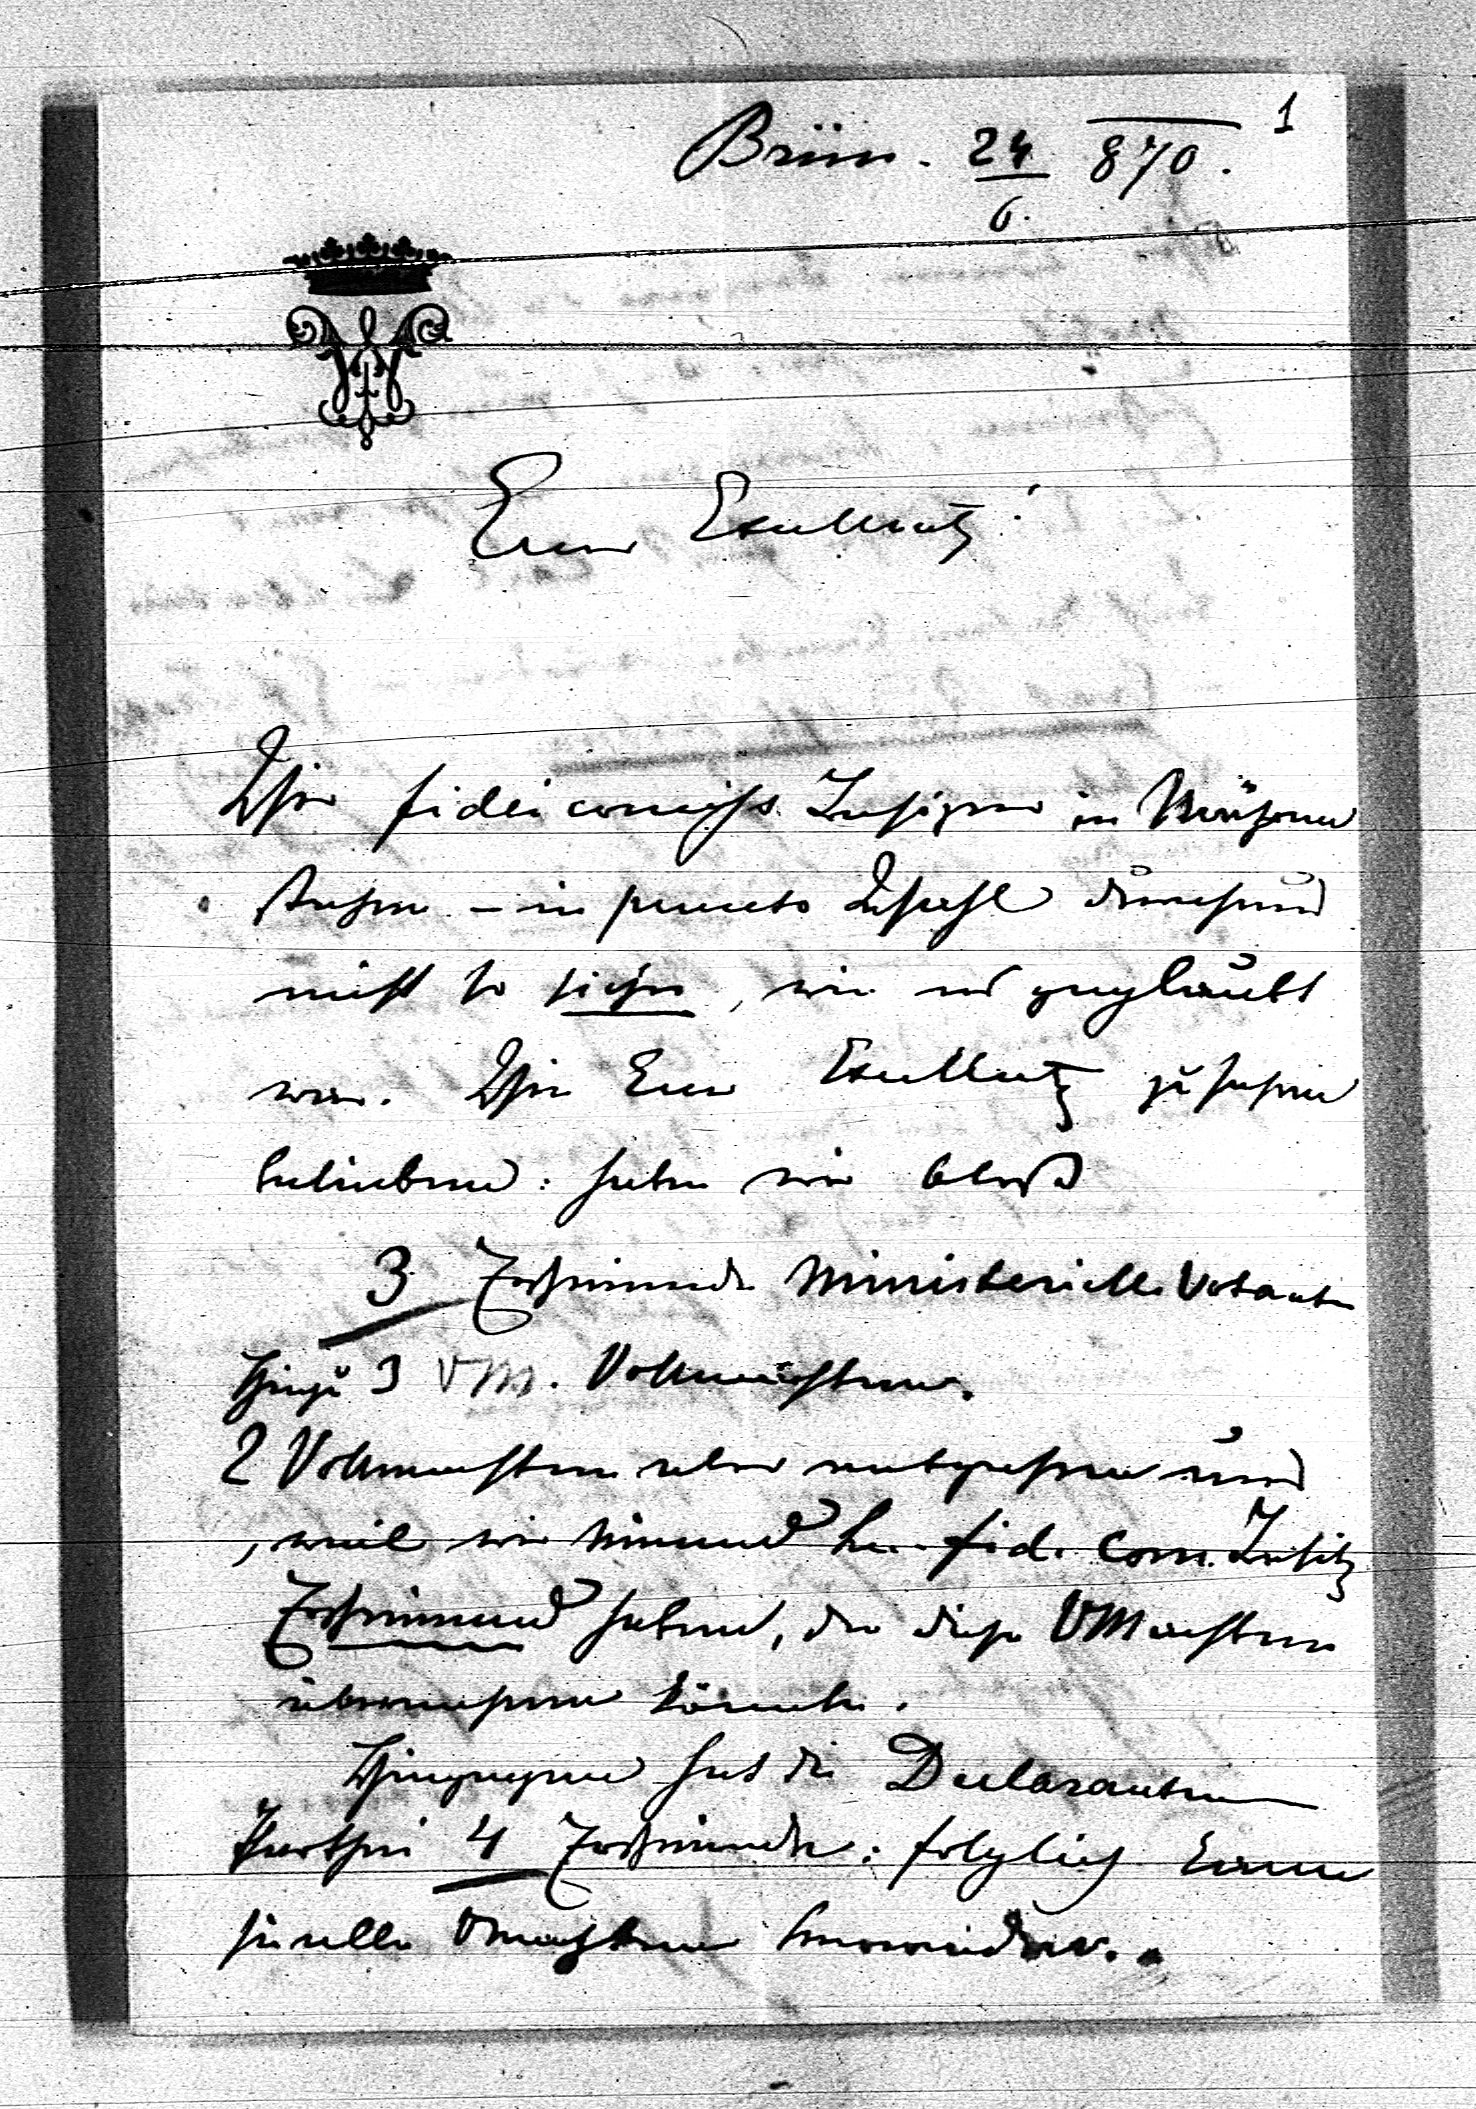 1
Brünn. 24/6. 870.
Euer Excellenz!
Die fideicomiss Besitzer in Mähren
stehen – in puncto Wahl durchaus
nicht so sicher, wie es geglaubt
war. Wie Euer Excellenz zu sehen
belieben: haben wir bloß
3 Erscheinende Ministerielle Votanten
hiezu 3 VM. Vollmachten.
2 Vollmachten aber entgehen uns
, weil wir niemand der fid. Com. Besitz
Erscheinend haben, der diese VMachten
übernehmen könnte.
Hingegen hat die Declaranten
Parthei 4 Erscheinende: folglich kann
sie alle Vmachten verwenden.